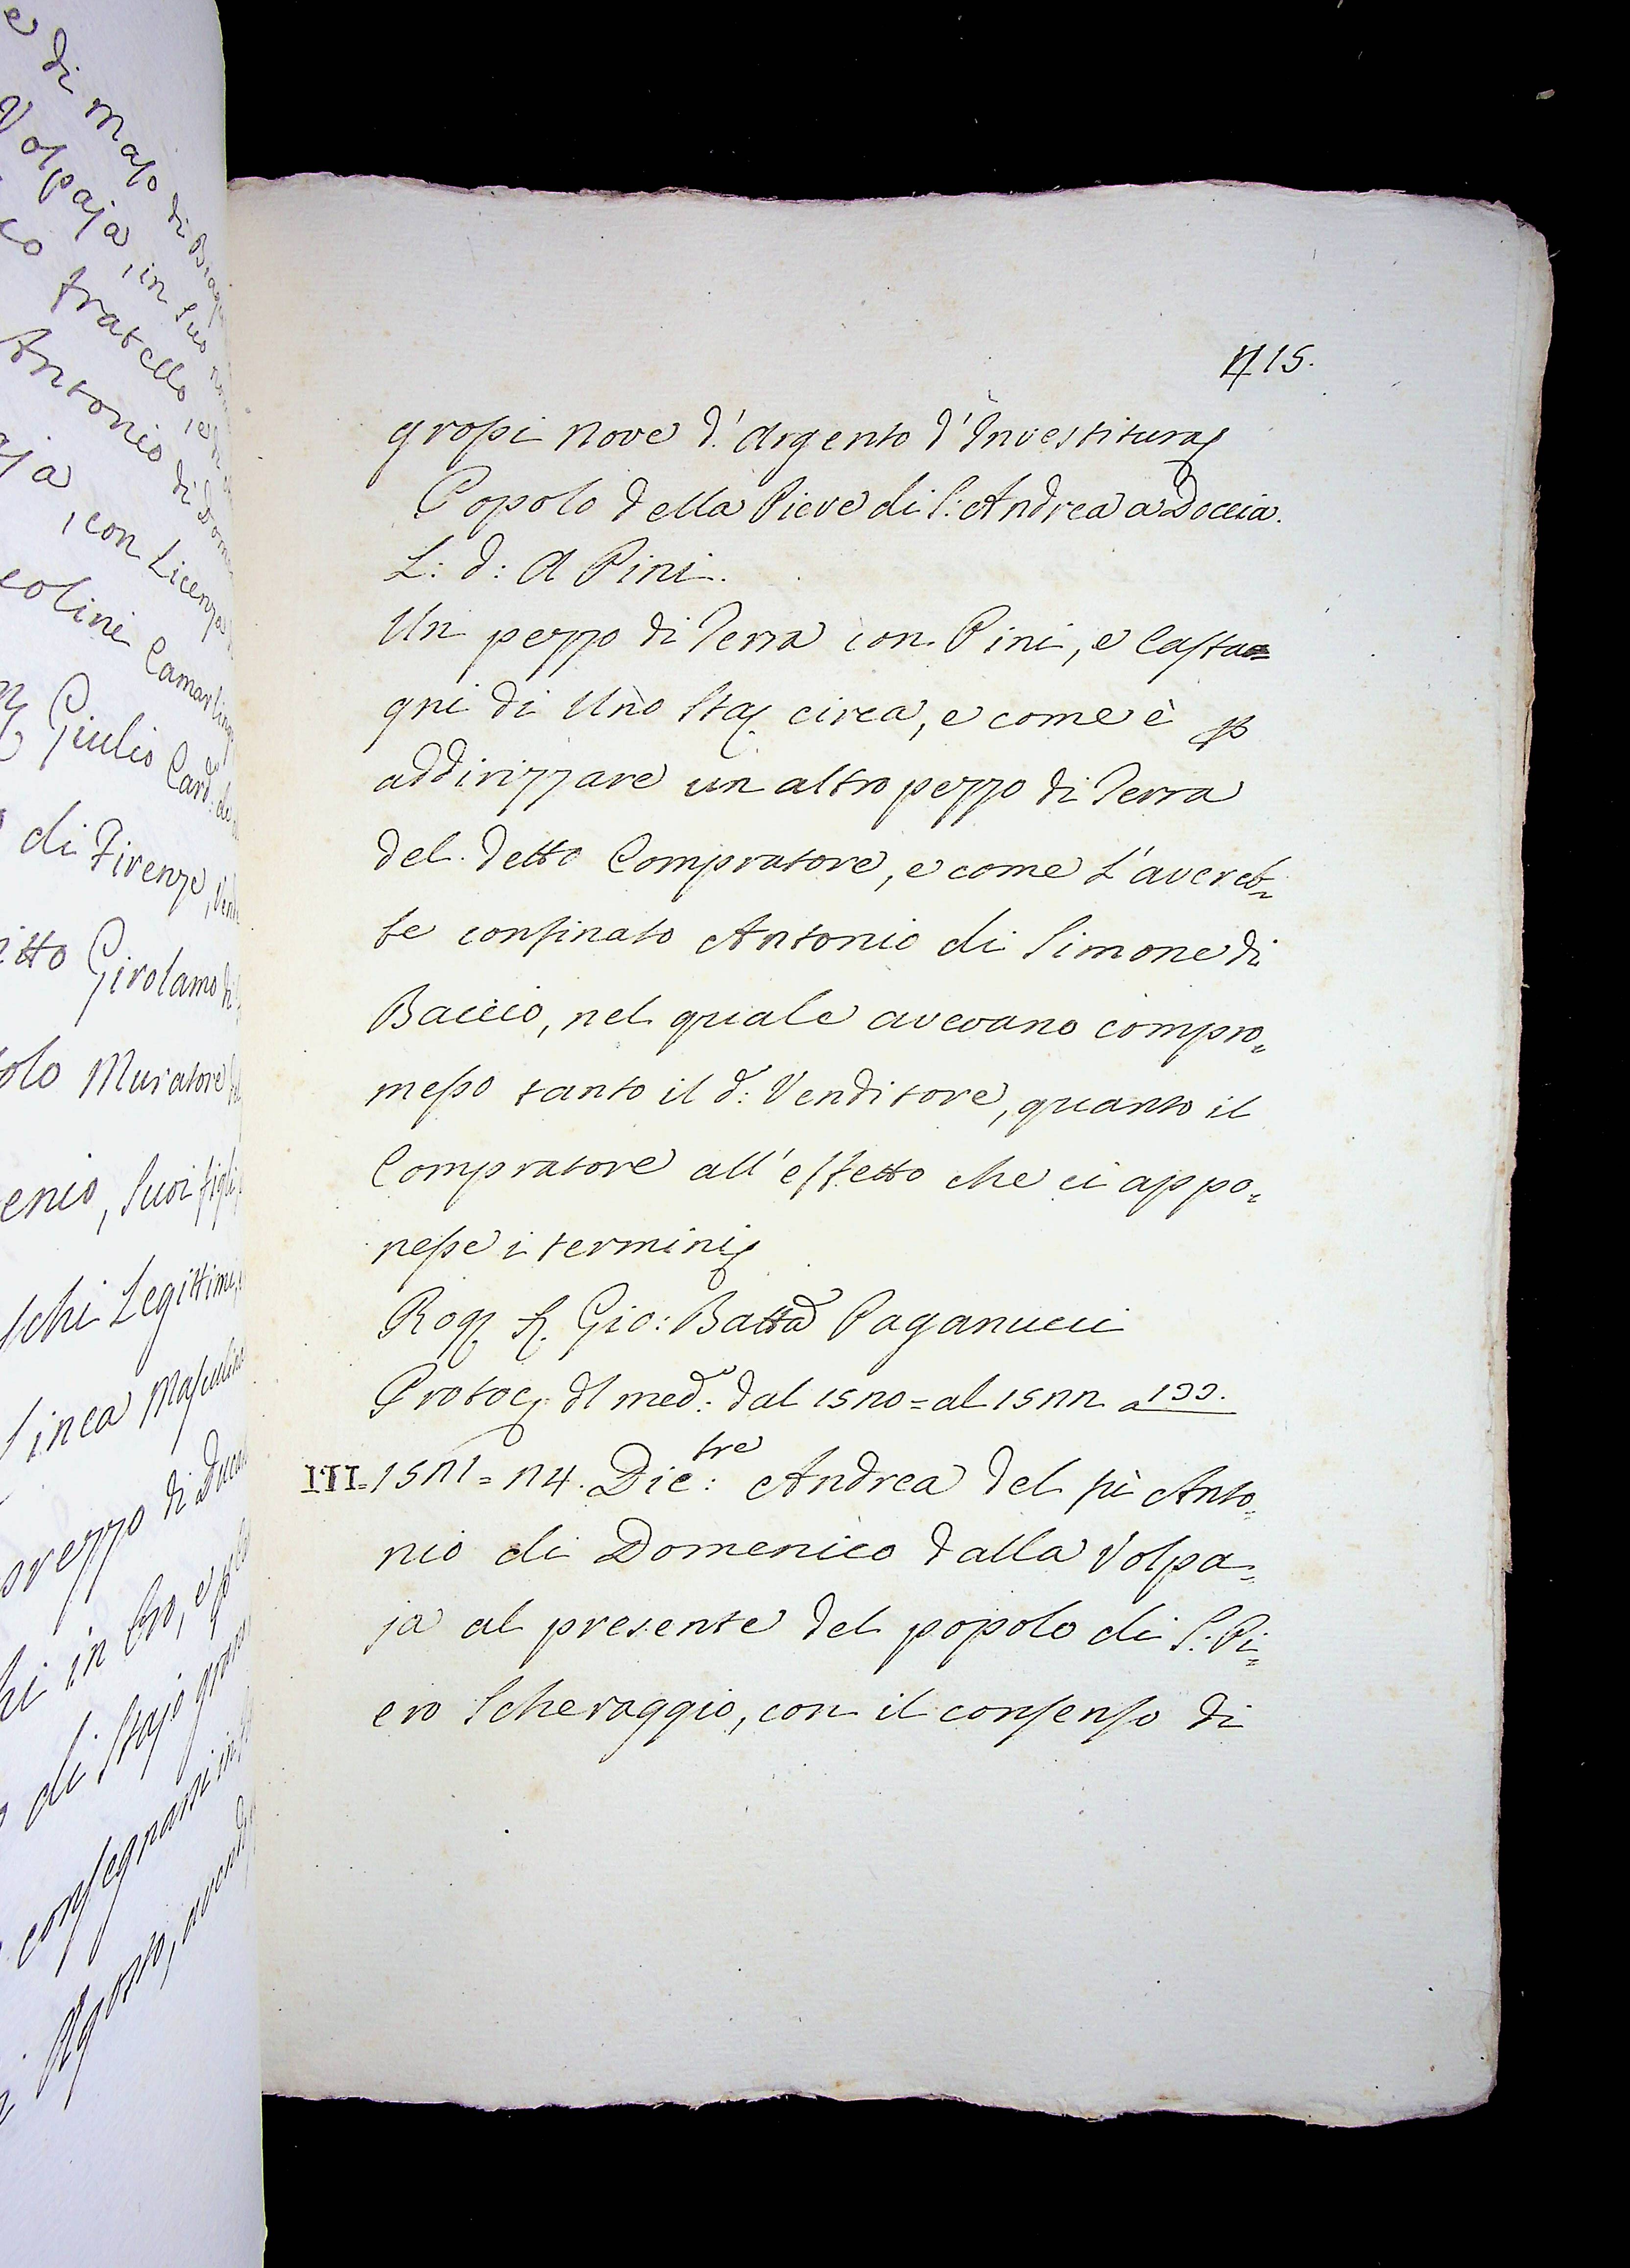 15.
grossi nove d'Argento d'Investitura
Popolo della Pieve di S: Andrea a Doccia.
L: d: A Pini.
Un pezzo di Terra con Pini, e Casta=
gni di Uno Sta: circa, e come è p
addirizzare un altro pezzo di Terra
del detto Compratore, e come l'avereb=
be confinato Antonio di Simone di
Baccio, nel quale avevano compro=
messo tanto il d: Venditore, quanto il
Compratore all'effetto che ci appo=
nesse i termini
Rog: S: Gio: Batta Paganucci
Protoc: dl med: dal 1520=al 1522 a 133.
III=1521=24. Dic:tre Andrea del fù Anto=
nio di Domenico dalla Volpa=
ja al presente del popolo di S: Pi=
ero Scheraggio, con il consenso di
e di Maso di
Volpaja, in suo
fratello, e
Antonio di Dom
con Licenza
colini Camarling
Giulio Card: de
di Firenze,
itto Girolamo di
olo Muratore
enio, Suoi figli
schi Legittimi,
Linea Masculina
prezzo di Duca
in Oro, e p
di Staja grano
consegnarsi in
Agosto, avendo